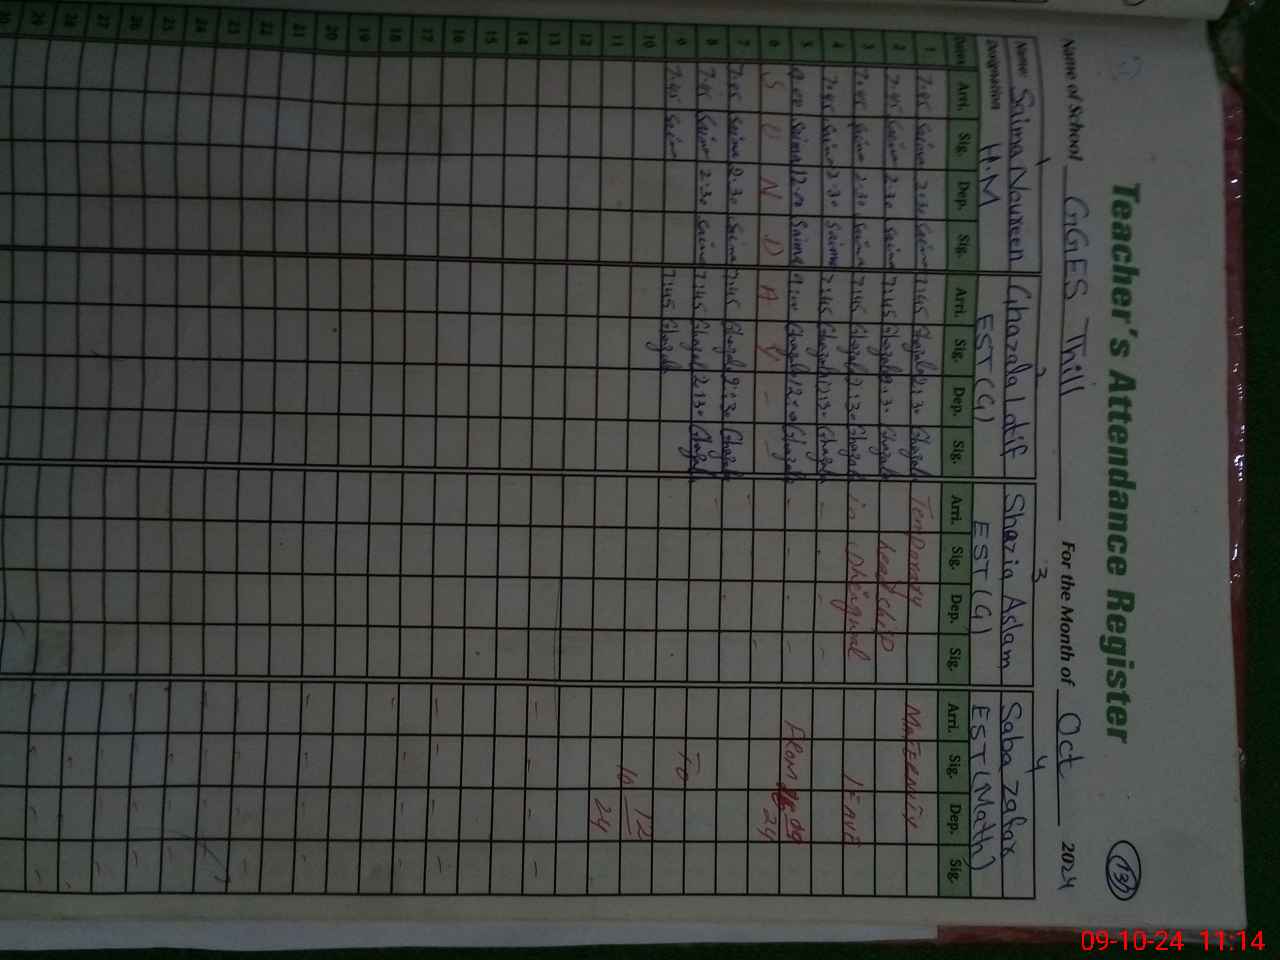 13b
Teacher's Attendance Register
Name of School GGES Thill For the Month of Oct 2024
1 2 3 4
Name: Saima Noureen Ghazala Latif Shazia Aslam Saba Zafar
Designation H.M EST (G) EST (G) EST (Math)
Date Arri. Sig. Dep. Sig. Arri. Sig. Dep. Sig. Arri. Sig. Dep. Sig. Arri. Sig. Dep. Sig.
1 7:45 Saima 2:30 Saima 7:45 Ghazala 2:30 Ghazala Temporary Maternity
2 7:45 Saima 2:30 Saima 7:45 Ghazala 2:30 Ghazala headship
3 7:45 Saima 2:30 Saima 7:45 Ghazala 2:30 Ghazala in leave
4 7:45 Saima 2:30 Saima 7:45 Ghazala 2:30 Ghazala
5 8:00 Saima 12:00 Saima 8:00 Ghazala 12:00 Ghazala From 09
6 S U N D A Y - - 24
7 7:45 Saima 2:30 Saima 7:45 Ghazala 2:30 Ghazala
8 7:45 Saima 2:30 Saima 7:45 Ghazala 2:30 Ghazala To
9 7:45 Saima 7:45 Ghazala
10 16 12
11 24
12
13
14
15
16
17
18
19
20
21
22
23
24
25
26
27
28
29
30
09-10-24 11:14